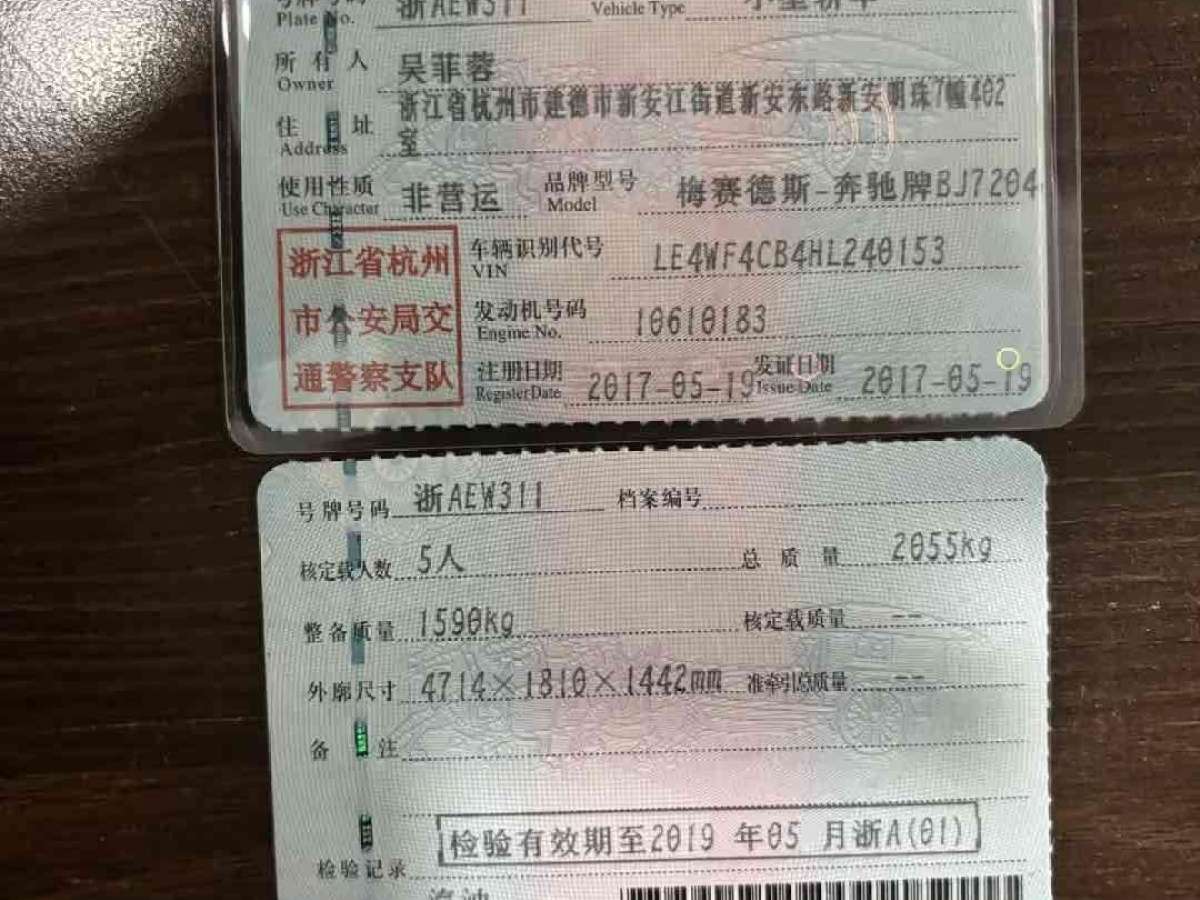 号牌号码 浙AEW311 Vehicle Type 小型轿车
Plate No.
所有人 吴菲蓉
Owner
浙江省杭州市建德市新安江街道新安东路新安明珠7幢402
住址 室
Address
使用性质 非营运 品牌型号 梅赛德斯-奔驰牌BJ7204
Use Character Model
浙江省杭州 车辆识别代号 LE4WF4CB4HL240153
VIN
市公安局交 发动机号码 10610183
Engine No.
通警察支队 注册日期 2017-05-19 发证日期 2017-05-19
Register Date Issue Date
号牌号码 浙AEW311 档案编号
核定载人数 5人 总质量 2055kg
整备质量 1590kg 核定载质量 --
外廓尺寸 4714×1810×1442mm 准牵引总质量 --
备注
检验有效期至2019 年05 月浙A(01)
检验记录
汽油